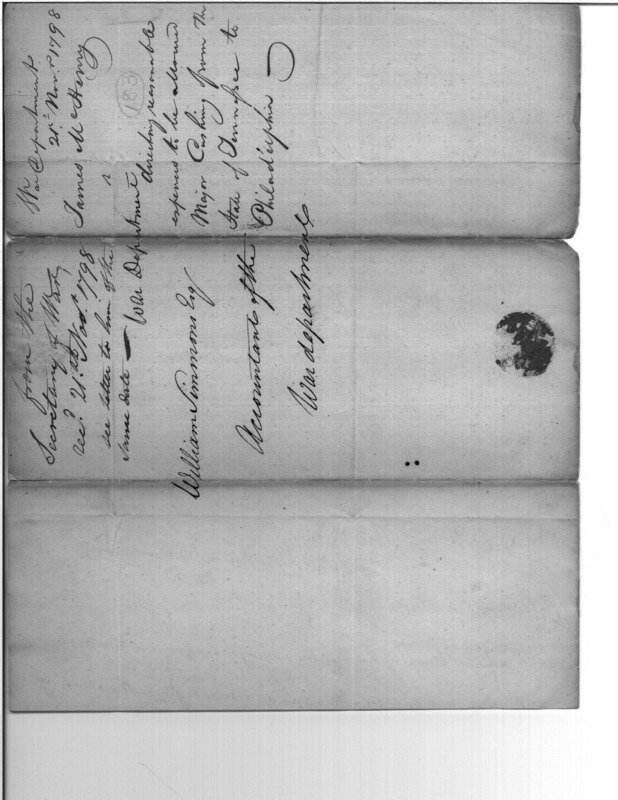 War Department
21st Novr 1798
James McHenry
(183)
directing reasonable
expences to be allowed
Major Cushing from the
State of Tennessee to
Philadelphia
from the
Secretary of War,
recd. 21st Novr 1798
see letter to him of the
same date
War Department
William Simmons Esq
Accountant of the
War department